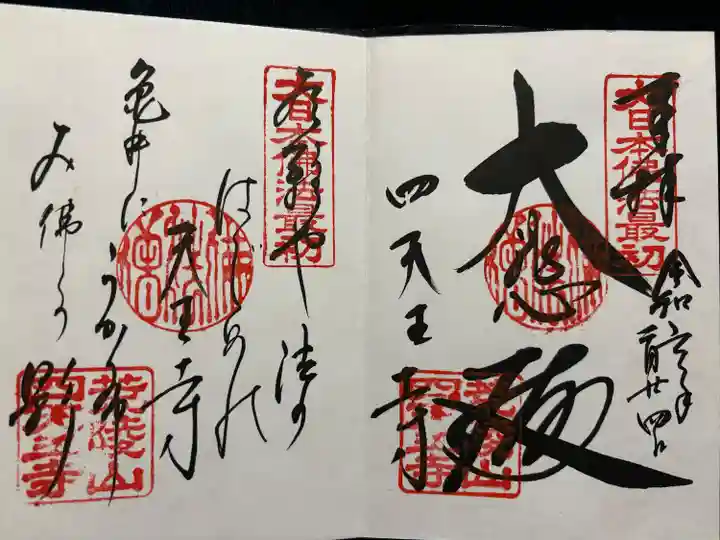 奉拝
大日本佛法最初
令和六年
廿四日
大悲殿
四天王寺
荒陵山
四天王寺
大日本佛法最初
有難や法の
はじめの
天王寺
亀井にうか布
み佛の影
荒陵山
四天王寺